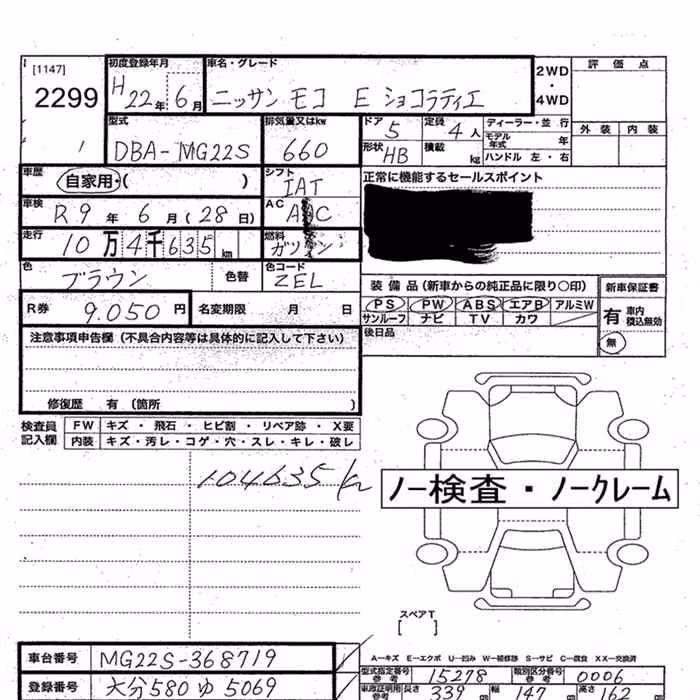 [1147]
2299
1
初度登録年月
H22年6月
車名・グレード
ニッサン モコ E ショコラティエ
2WD
・
4WD
評価点
外装 内装
型式
DBA-MG22S
排気量又はkw
660
ドア 5
定員 4人
形状 HB
積載 kg
ディーラー・並行
モデル年式 年
ハンドル 左・右
車歴
自家用・( )
シフト
IAT
正常に機能するセールスポイント
車検
R9年6月(28日)
AC
走行
10万4千635km
燃料
ガソリン
色
ブラウン
色替
色コード
ZEL
装備品(新車からの純正品に限り○印)
新車保証書
PS PW ABS エアB アルミW
サンルーフ ナビ TV カワ
有 車内積込無効
無
後日品
R券 9.050円
名変期限 月 日
注意事項申告欄(不具合内容等は具体的に記入して下さい)
修復歴 有(箇所 )
検査員記入欄
FW キズ・飛石・ヒビ割・リペア跡・X要
内装 キズ・汚レ・コゲ・穴・スレ・キレ・破レ
104635km
ノー検査・ノークレーム
スペアT
[ ]
車台番号 MG22S-368719
A−キズ E−エクボ U−凹み W−補修跡 S−サビ C−腐食 XX−交換済
登録番号 大分580ゆ5069
型式指定番号参考 15278
類別区分番号参考 0006
車庫証明用参考 長さ 339
幅 147
高さ 162